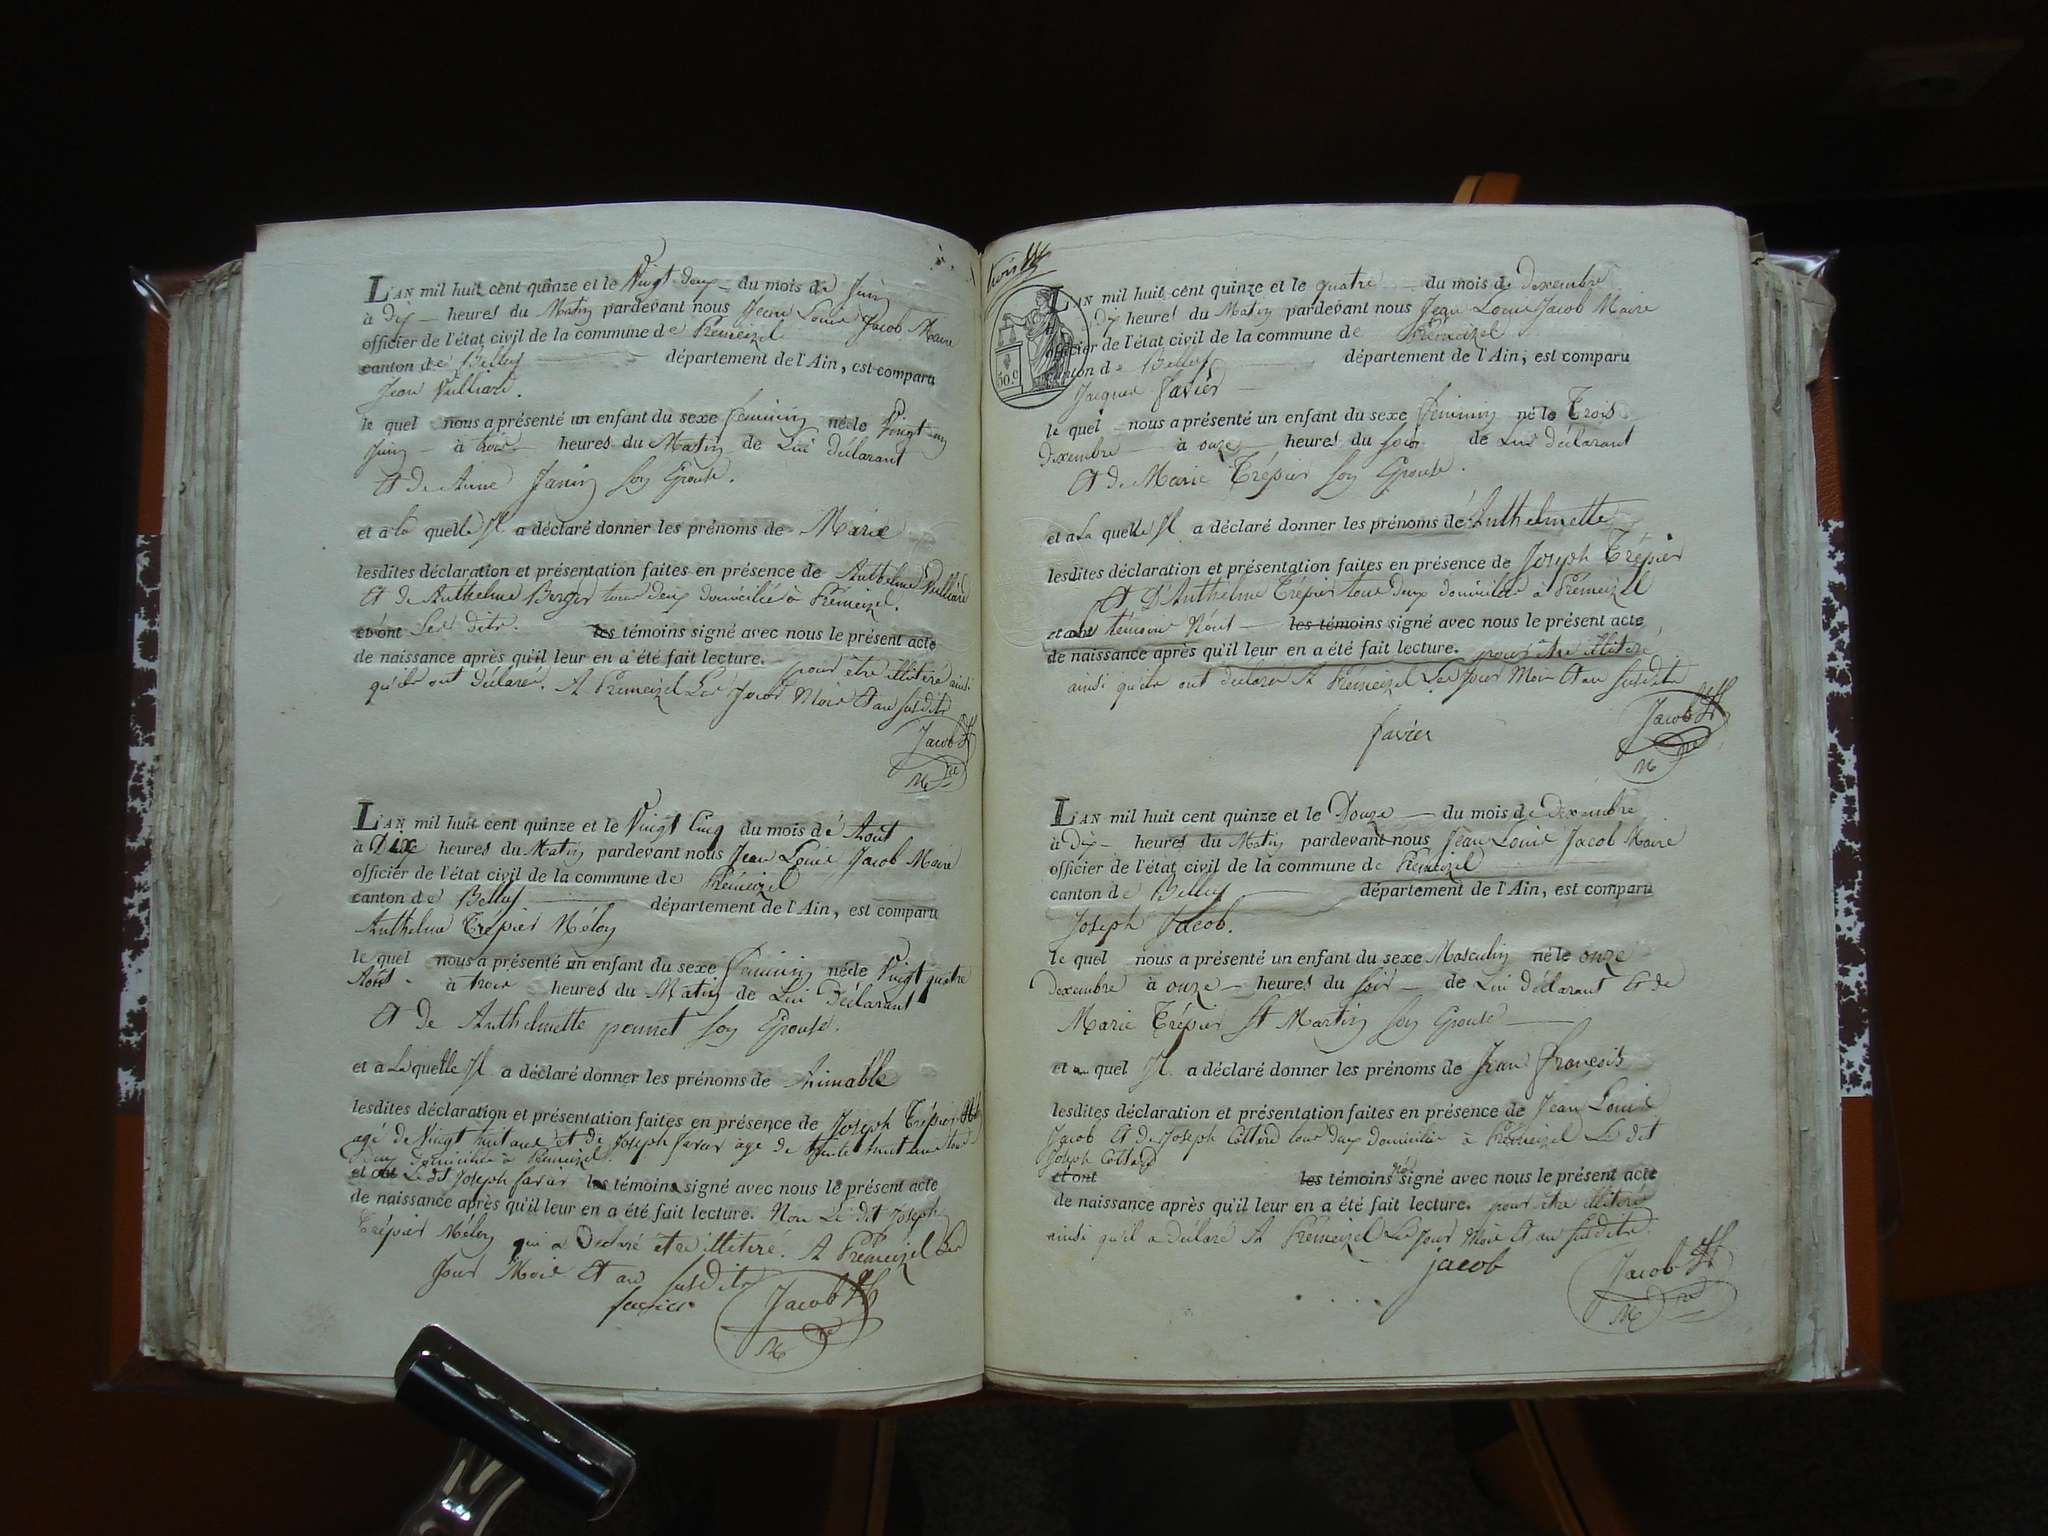 L'AN mil huit cent quinze et le Vingt deux du mois de Juin
à dix heures du Matin pardevant nous Jean Louis Jacob Maire
officier de l'état civil de la commune de Prémeizel
canton de Belley département de l'Ain, est comparu
Jean Vulliard.
le quel nous a présenté un enfant du sexe feminin né le Vingt un
Juin à trois heures du Matin de Lui déclarant
Et de Anne Janin Son Epouse.
et a la quelle Il a déclaré donner les prénoms de Marie
lesdites déclaration et présentation faites en présence de Anthelme Vulliard
Et de Anthelme Berger tous deux domicilié à Prémeizel.
et ont Les dits les témoins signé avec nous le présent acte
de naissance après qu'il leur en a été fait lecture. pour etre illitéré ainsi
qu'ils ont déclaré. A Prémeizel Les Jour Mois Et an susdits
Jacob
Mre
L'AN mil huit cent quinze et le Vingt Cinq du mois de Aout
à Dix heures du Matin pardevant nous Jean Louis Jacob Maire
officier de l'état civil de la commune de Prémeizel
canton de Belley département de l'Ain, est comparu
Anthelme Trépier Méloy
le quel nous a présenté un enfant du sexe feminin né le Vingt quatre
Aout à trois heures du Matin de Lui Déclarant
Et de Anthelmette ponnet Son Epouse.
et a La quelle Il a déclaré donner les prénoms de Aimable
lesdites déclaration et présentation faites en présence de Joseph Trépier
agé de Vingt huit ans et de Joseph favier agé de trente huit ans tous
Deux domicilié à Prémeizel.
et ont Le dt Joseph favier les témoins signé avec nous le présent acte
de naissance après qu'il leur en a été fait lecture. Non Le dit Joseph
Trépier Méloy qui a Déclaré etre illitéré. A Prémeizel Les
Jour Mois Et an susdits
favier Jacob
Mre
trois
50.c
L'AN mil huit cent quinze et le quatre du mois de dexembre
dix heures du Matin pardevant nous Jean Louis Jacob Maire
officier de l'état civil de la commune de Prémeizel
canton de Belley département de l'Ain, est comparu
Jacques favier
le quel nous a présenté un enfant du sexe feminin né le Trois
dexembre à onze heures du soir de Lui déclarant
Et de Marie Trépier Son Epouse.
et a La quelle Il a déclaré donner les prénoms de Anthelmette
lesdites déclaration et présentation faites en présence de Joseph Trépier
Et D'Anthelme Trépier tous deux domiciliés a Prémeizel
et ont témoins N'ont les témoins signé avec nous le présent acte
de naissance après qu'il leur en a été fait lecture. pour etre illitéré,
ainsi qu'ils ont déclaré A Prémeizel Les Jour Mois Et an susdits
favier Jacob
Mre
L'AN mil huit cent quinze et le Douze du mois de Dexembre
à dix heures du Matin pardevant nous Jean Louis Jacob Maire
officier de l'état civil de la commune de Prémeizel
canton de Belley département de l'Ain, est comparu
Joseph Jacob.
le quel nous a présenté un enfant du sexe Masculin né le onze
dexembre à onze heures du soir de Lui déclarant Et de
Marie Trépier St Martin Son Epouse
et au quel Il a déclaré donner les prénoms de Jean françois
lesdites déclaration et présentation faites en présence de Jean Louis
Jacob Et de Joseph Cottard tous deux domicilié à Prémeizel Le dit
Joseph Cottard
et ont les témoins signé avec nous le présent acte
de naissance après qu'il leur en a été fait lecture. pour etre illitéré
ainsi qu'il a déclaré A Prémeizel Les Jour Mois Et an susdits.
jacob Jacob
Mre